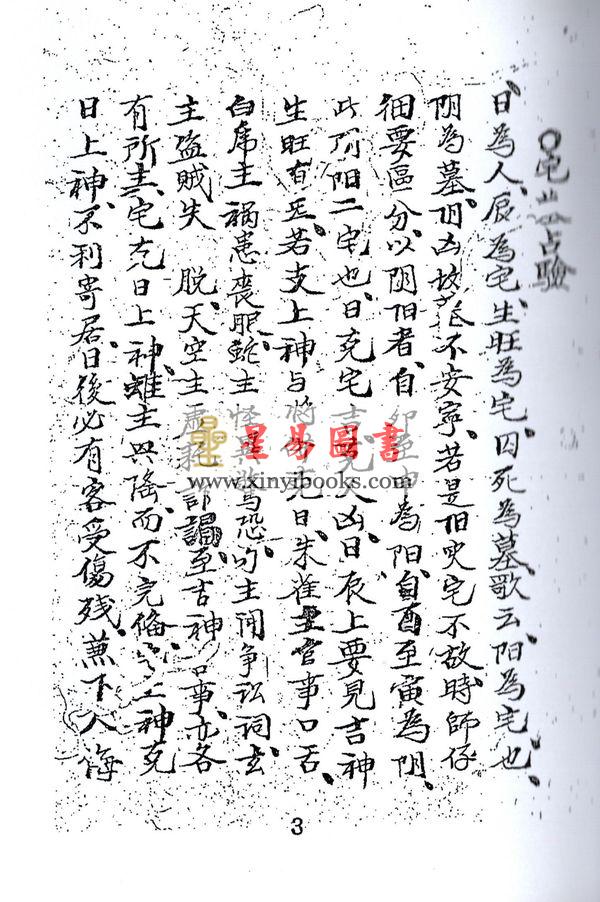 〇宅占驗
日為人、辰為宅、生旺為宅、囚死為墓、歌云、阳為宅也、
阴為墓、旧凶故不安寧、若是旧宅不故時、師仔
细要區分、以阴阳者、自卯至申為阳、自酉至寅為阴、
此阴阳二宅也、日克宅吉、克人凶、日辰上要見吉神
生旺有气、若支上神与将克日、朱雀主官事口舌、
白虎主禍患喪服、蛇主怪異驚恐、勾主闹争讼詞、玄
主盗賊失脱、天空主虚、至吉神事、亦各
有所主、宅克日上神、雖主兴隆、而不完偹、上神克
日上神、不利寄居、日後必有客受傷残、兼下人侮
星易圖書
www.xinyibooks.com
3